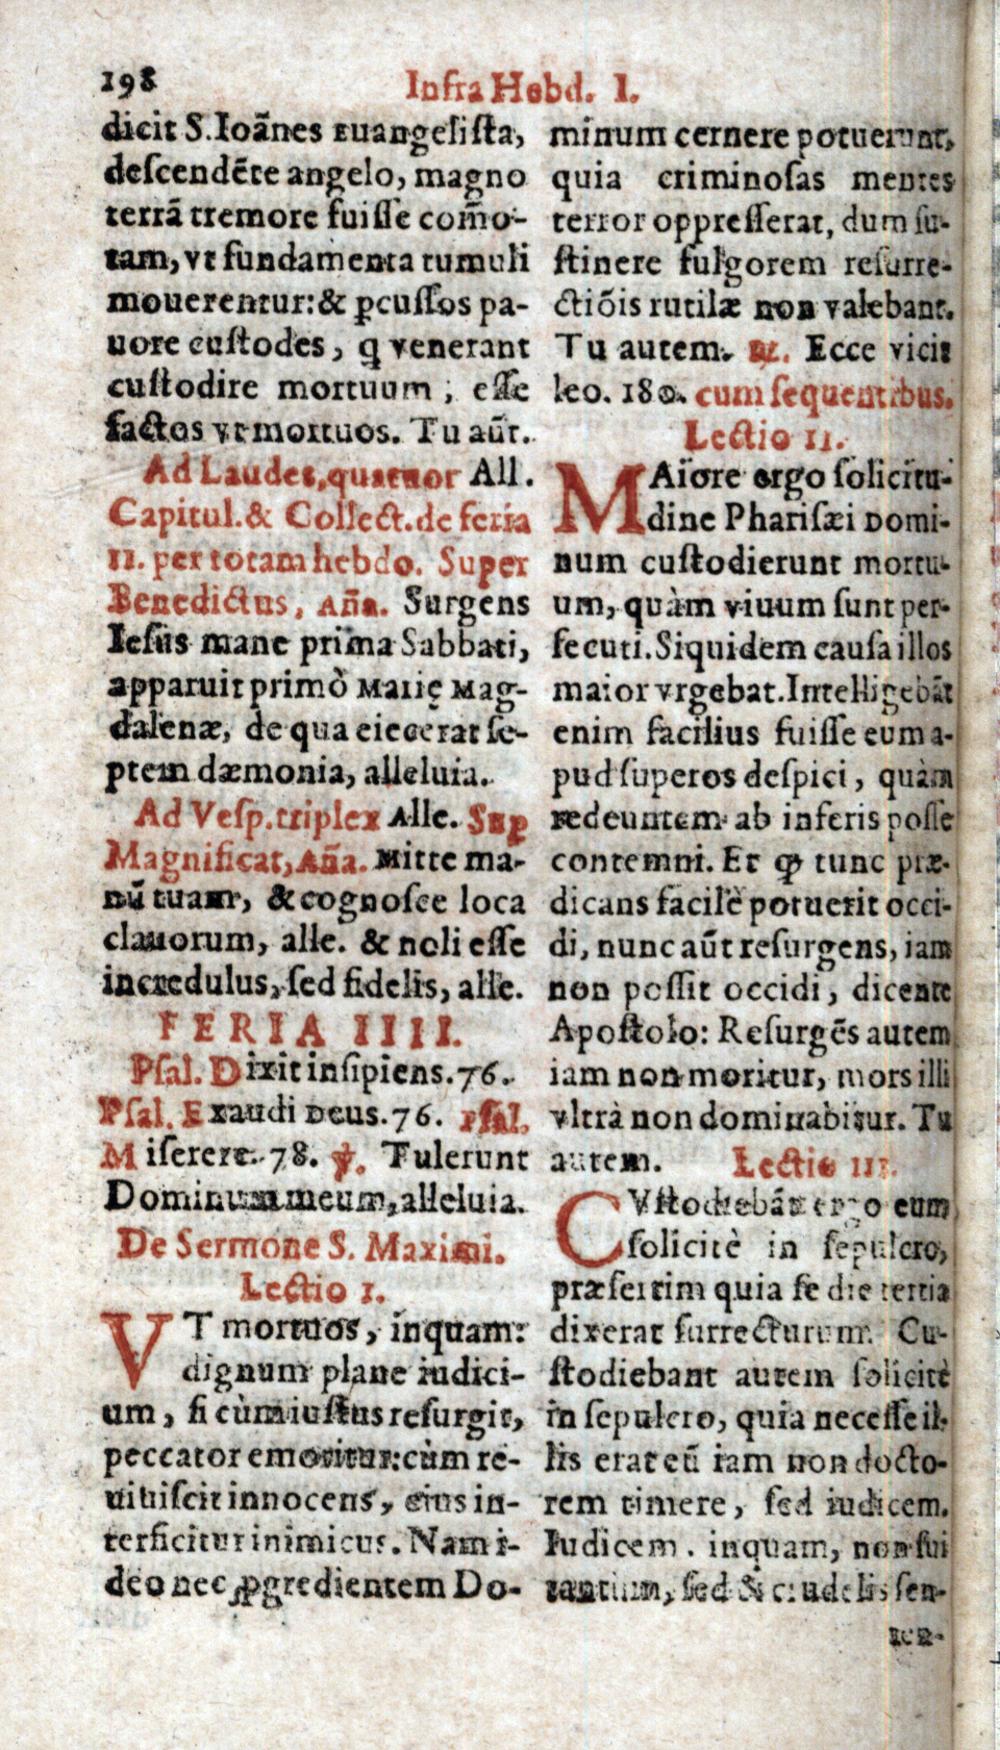 198
Infra Hebd. I.
dicit S. Ioãnes euangelista,
descendẽte angelo, magno
terrã tremore fuisse com̃o-
tam, vt fundamenta tumuli
mouerentur: & ꝑcussos pa-
uore custodes, q venerant
custodire mortuum; esse
factos vt mortuos. Tu aũt.
Ad Laudes, quatuor All.
Capitul. & Collect. de feria
II. per totam hebdo. Super
Benedictus, Añа. Surgens
Iesus mane prima Sabbati,
apparuit primò Marię Mag-
dalenæ, de qua eiecerat se-
ptem dæmonia, alleluia.
Ad Vesp. triplex Alle. Sup
Magnificat, Aña. Mitte ma-
nũ tuam, & cognosce loca
clauorum, alle. & noli esse
incredulus, sed fidelis, alle.
FERIA IIII.
Psal. Dixit insipiens. 76.
Psal. Exaudi Deus. 76. Psal.
Miserere. 78. ℣. Tulerunt
Dominum meum, alleluia.
De Sermone S. Maximi.
Lectio I.
VT mortuos, inquam:
dignum plane iudici-
um, si cùm iustus resurgit,
peccator emoritur: cùm re-
uiuiscit innocens, eius in-
terficitur inimicus. Nam i-
deo nec ꝓgredientem Do-
minum cernere potuerunt,
quia criminosas mentes
terror oppresserat, dum su-
stinere fulgorem resurre-
ctiõis rutilæ non valebant.
Tu autem. ℟. Ecce vicit
leo. 180. cum sequentibus.
Lectio II.
MAiore ergo solicitu-
dine Pharisæi Domi-
num custodierunt mortu-
um, quàm viuum sunt per-
secuti. Siquidem causa illos
maior vrgebat. Intelligebãt
enim facilius fuisse eum a-
pud superos despici, quàm
redeuntem ab inferis posse
contemni. Et ꝙ tunc præ-
dicans facilè potuerit occi-
di, nunc aũt resurgens, iam
non possit occidi, dicente
Apostolo: Resurgẽs autem
iam non moritur, mors illi
vltrà non dominabitur. Tu
autem. Lectio III.
CVstodiebãt ergo eum
solicitè in sepulcro,
præsertim quia se die tertia
dixerat surrecturum. Cu-
stodiebant autem solicitè
in sepulcro, quia necesse il-
lis erat eũ iam non docto-
rem timere, sed iudicem.
Iudicem, inquam, non sui
tantùm, sed & crudelis sen-
ten-